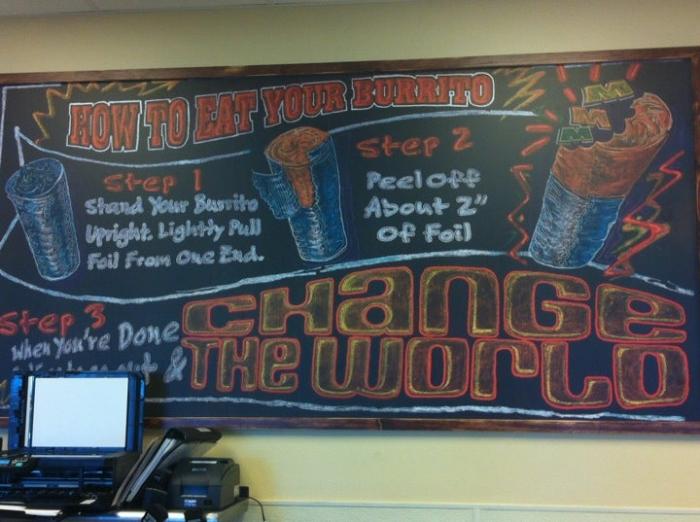 HOW TO EAT YOUR BURRITO
Step 1
Stand Your Burrito
Upright. Lightly Pull
Foil From One End.
Step 2
Peel Off
About 2"
Of Foil
M
M
M
Step 3
When You're Done
&
CHaNGe
THe WoRLD